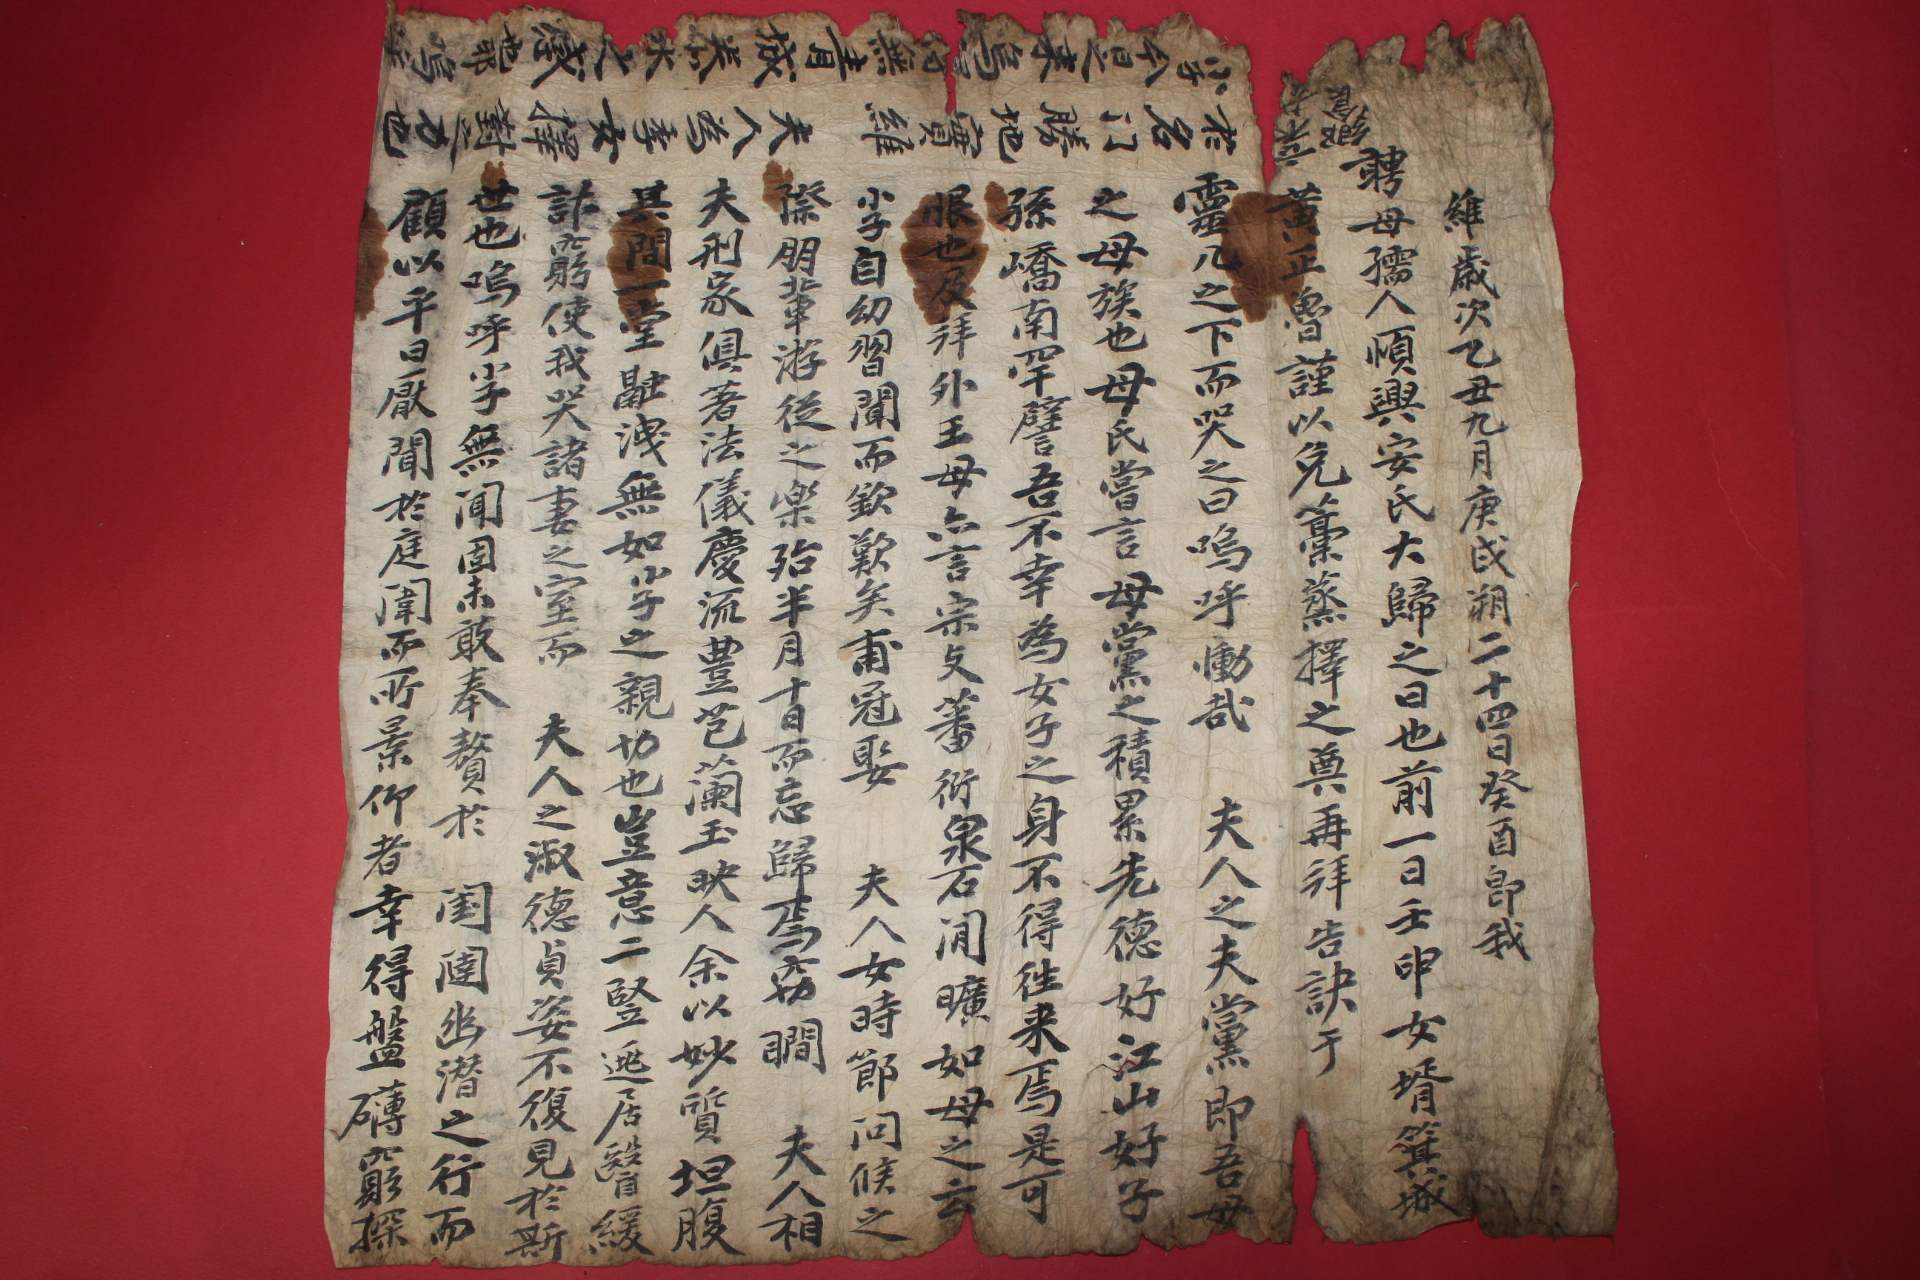 維歲次乙丑九月庚戌朔二十四日癸酉即我
聘母孺人順興安氏大歸之日也前一日壬申女壻箕城
黃正魯謹以兔藁蒸擇之奠再拜告訣于
靈几之下而哭之曰嗚呼慟哉 夫人之夫黨即吾母
之母族也母氏嘗言母黨之積累先德好江山好子
孫嶠南罕譬吾不幸為女子之身不得徃来焉是可
恨也及拜外王母亦言宗支蕃衍泉石閒曠如母之云
小子自幼習聞而欽歎矣甫冠娶 夫人女時節問候之
際朋輩游從之楽殆半月十日而忘歸焉窃瞷 夫人相
夫刑家俱著法儀慶流豊芑蘭玉映人余以妙質坦腹
其間一堂融洩無如小子之親切也豈意二竪逃居醫緩
計窮使我哭諸妻之室而 夫人之淑德貞姿不復見於斯
世也嗚呼小子無聞固未敢奉贅於 閨閫幽潜之行而
顧以平日厭聞於庭闈而所景仰者幸得盤礴窮探
於名门勝地實維 夫人為季女擇對之力也
小子今日之来烏 無 城 水之感 也耶嗚呼